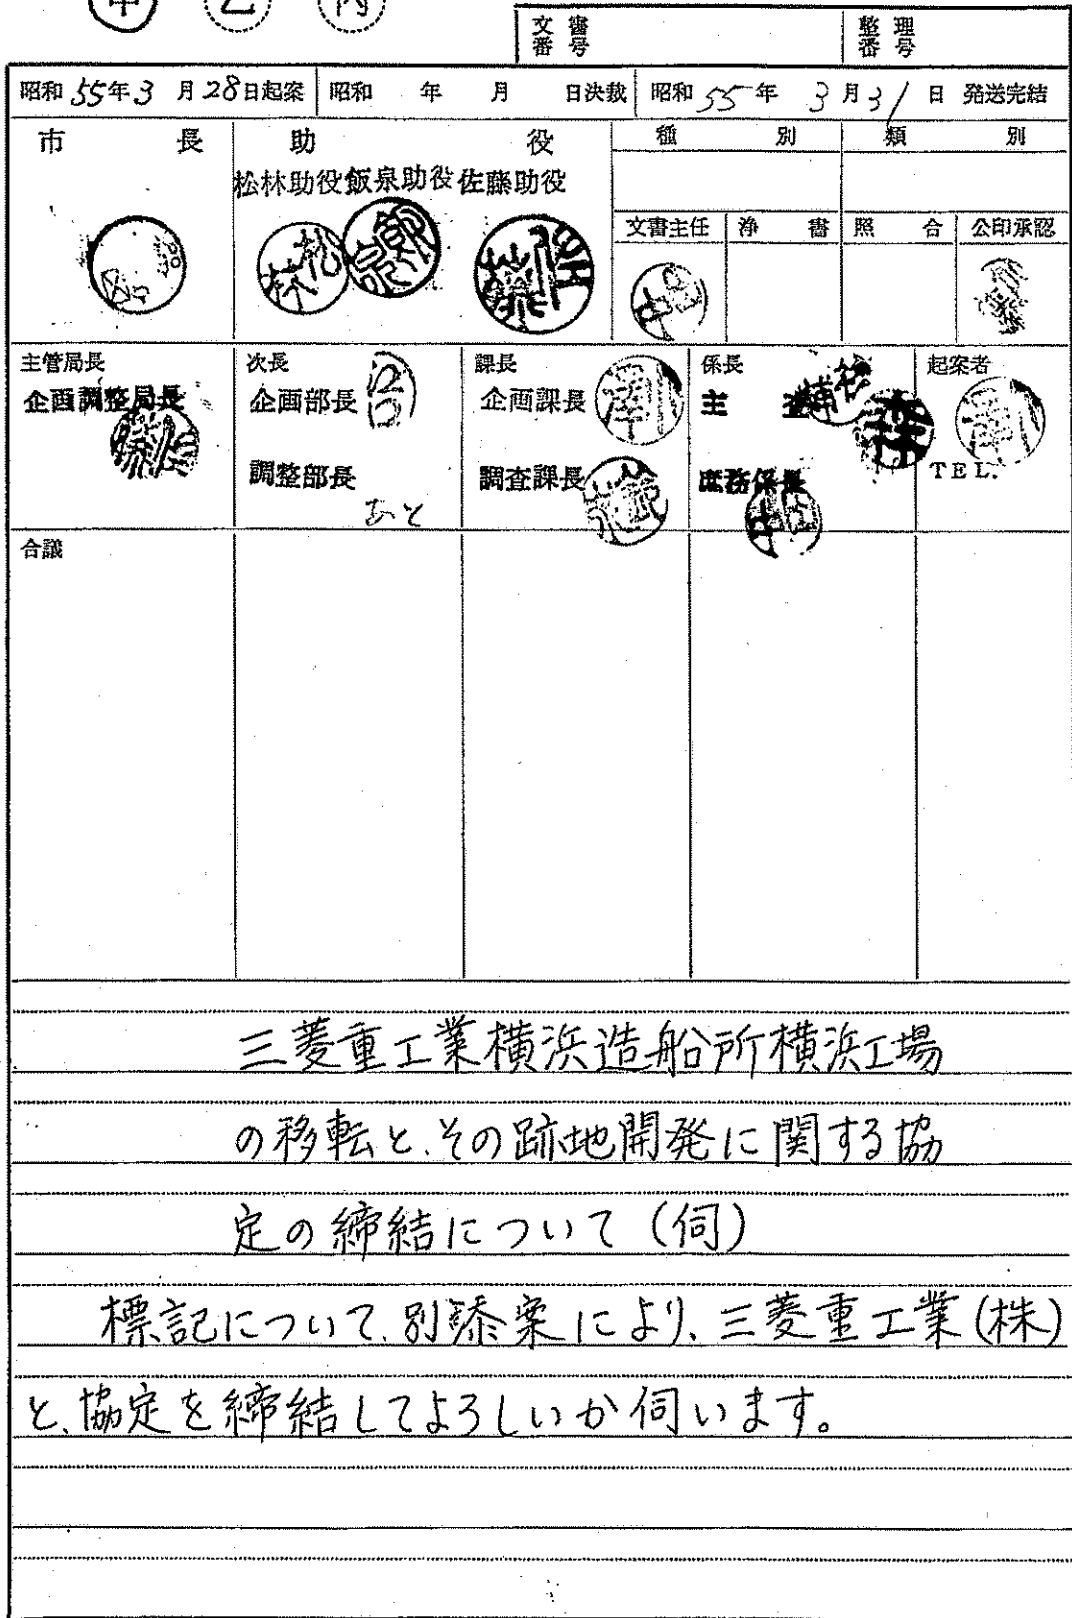 甲 乙 丙
文書番号 整理番号
昭和55年3月28日起案 昭和 年 月 日決裁 昭和55年3月31日 発送完結
市長 助役 種別 類別
松林助役 飯泉助役 佐藤助役
文書主任 浄書 照合 公印承認
主管局長 次長 課長 係長 起案者
企画調整局長 企画部長 企画課長 主査
調整部長 調査課長 庶務係長 TEL.
あと
合議
三菱重工業横浜造船所横浜工場
の移転と、その跡地開発に関する協
定の締結について(伺)
標記について、別添案により、三菱重工業(株)
と、協定を締結してよろしいか伺います。